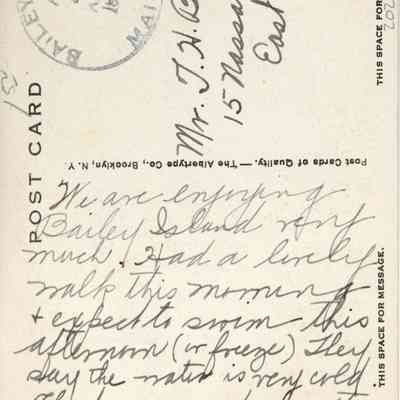 BAILEY
MAI
Mr. J. H. B
15 Nassa
East
THIS SPACE FOR
202
POST CARD
Post Cards of Quality. — The Albertype Co., Brooklyn, N. Y.
THIS SPACE FOR MESSAGE.
We are enjoying
Bailey Island very
much. Had a lovely
walk this morning
+ expect to swim this
afternoon (or freeze) They
say the water is very cold